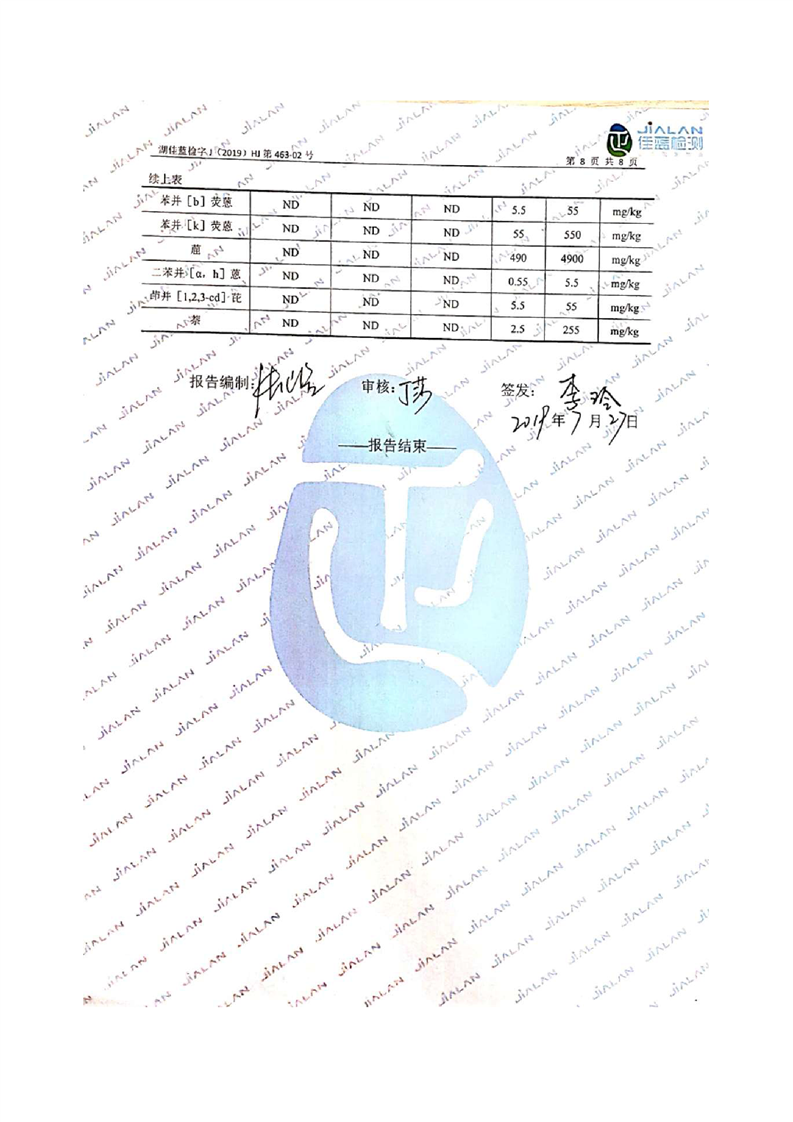 JiALAN
佳蓝检测
湖佳蓝检字J（2019）HJ第463-02号
第 8 页 共 8 页
续上表
苯并［b］荧蒽 ND ND ND 5.5 55 mg/kg
苯并［k］荧蒽 ND ND ND 55 550 mg/kg
䓛 ND ND ND 490 4900 mg/kg
二苯并［α，h］蒽 ND ND ND 0.55 5.5 mg/kg
茚并［1,2,3-cd］芘 ND ND ND 5.5 55 mg/kg
萘 ND ND ND 2.5 255 mg/kg
报告编制： 审核：丁莎 签发：李玲
2019年7月27日
——报告结束——